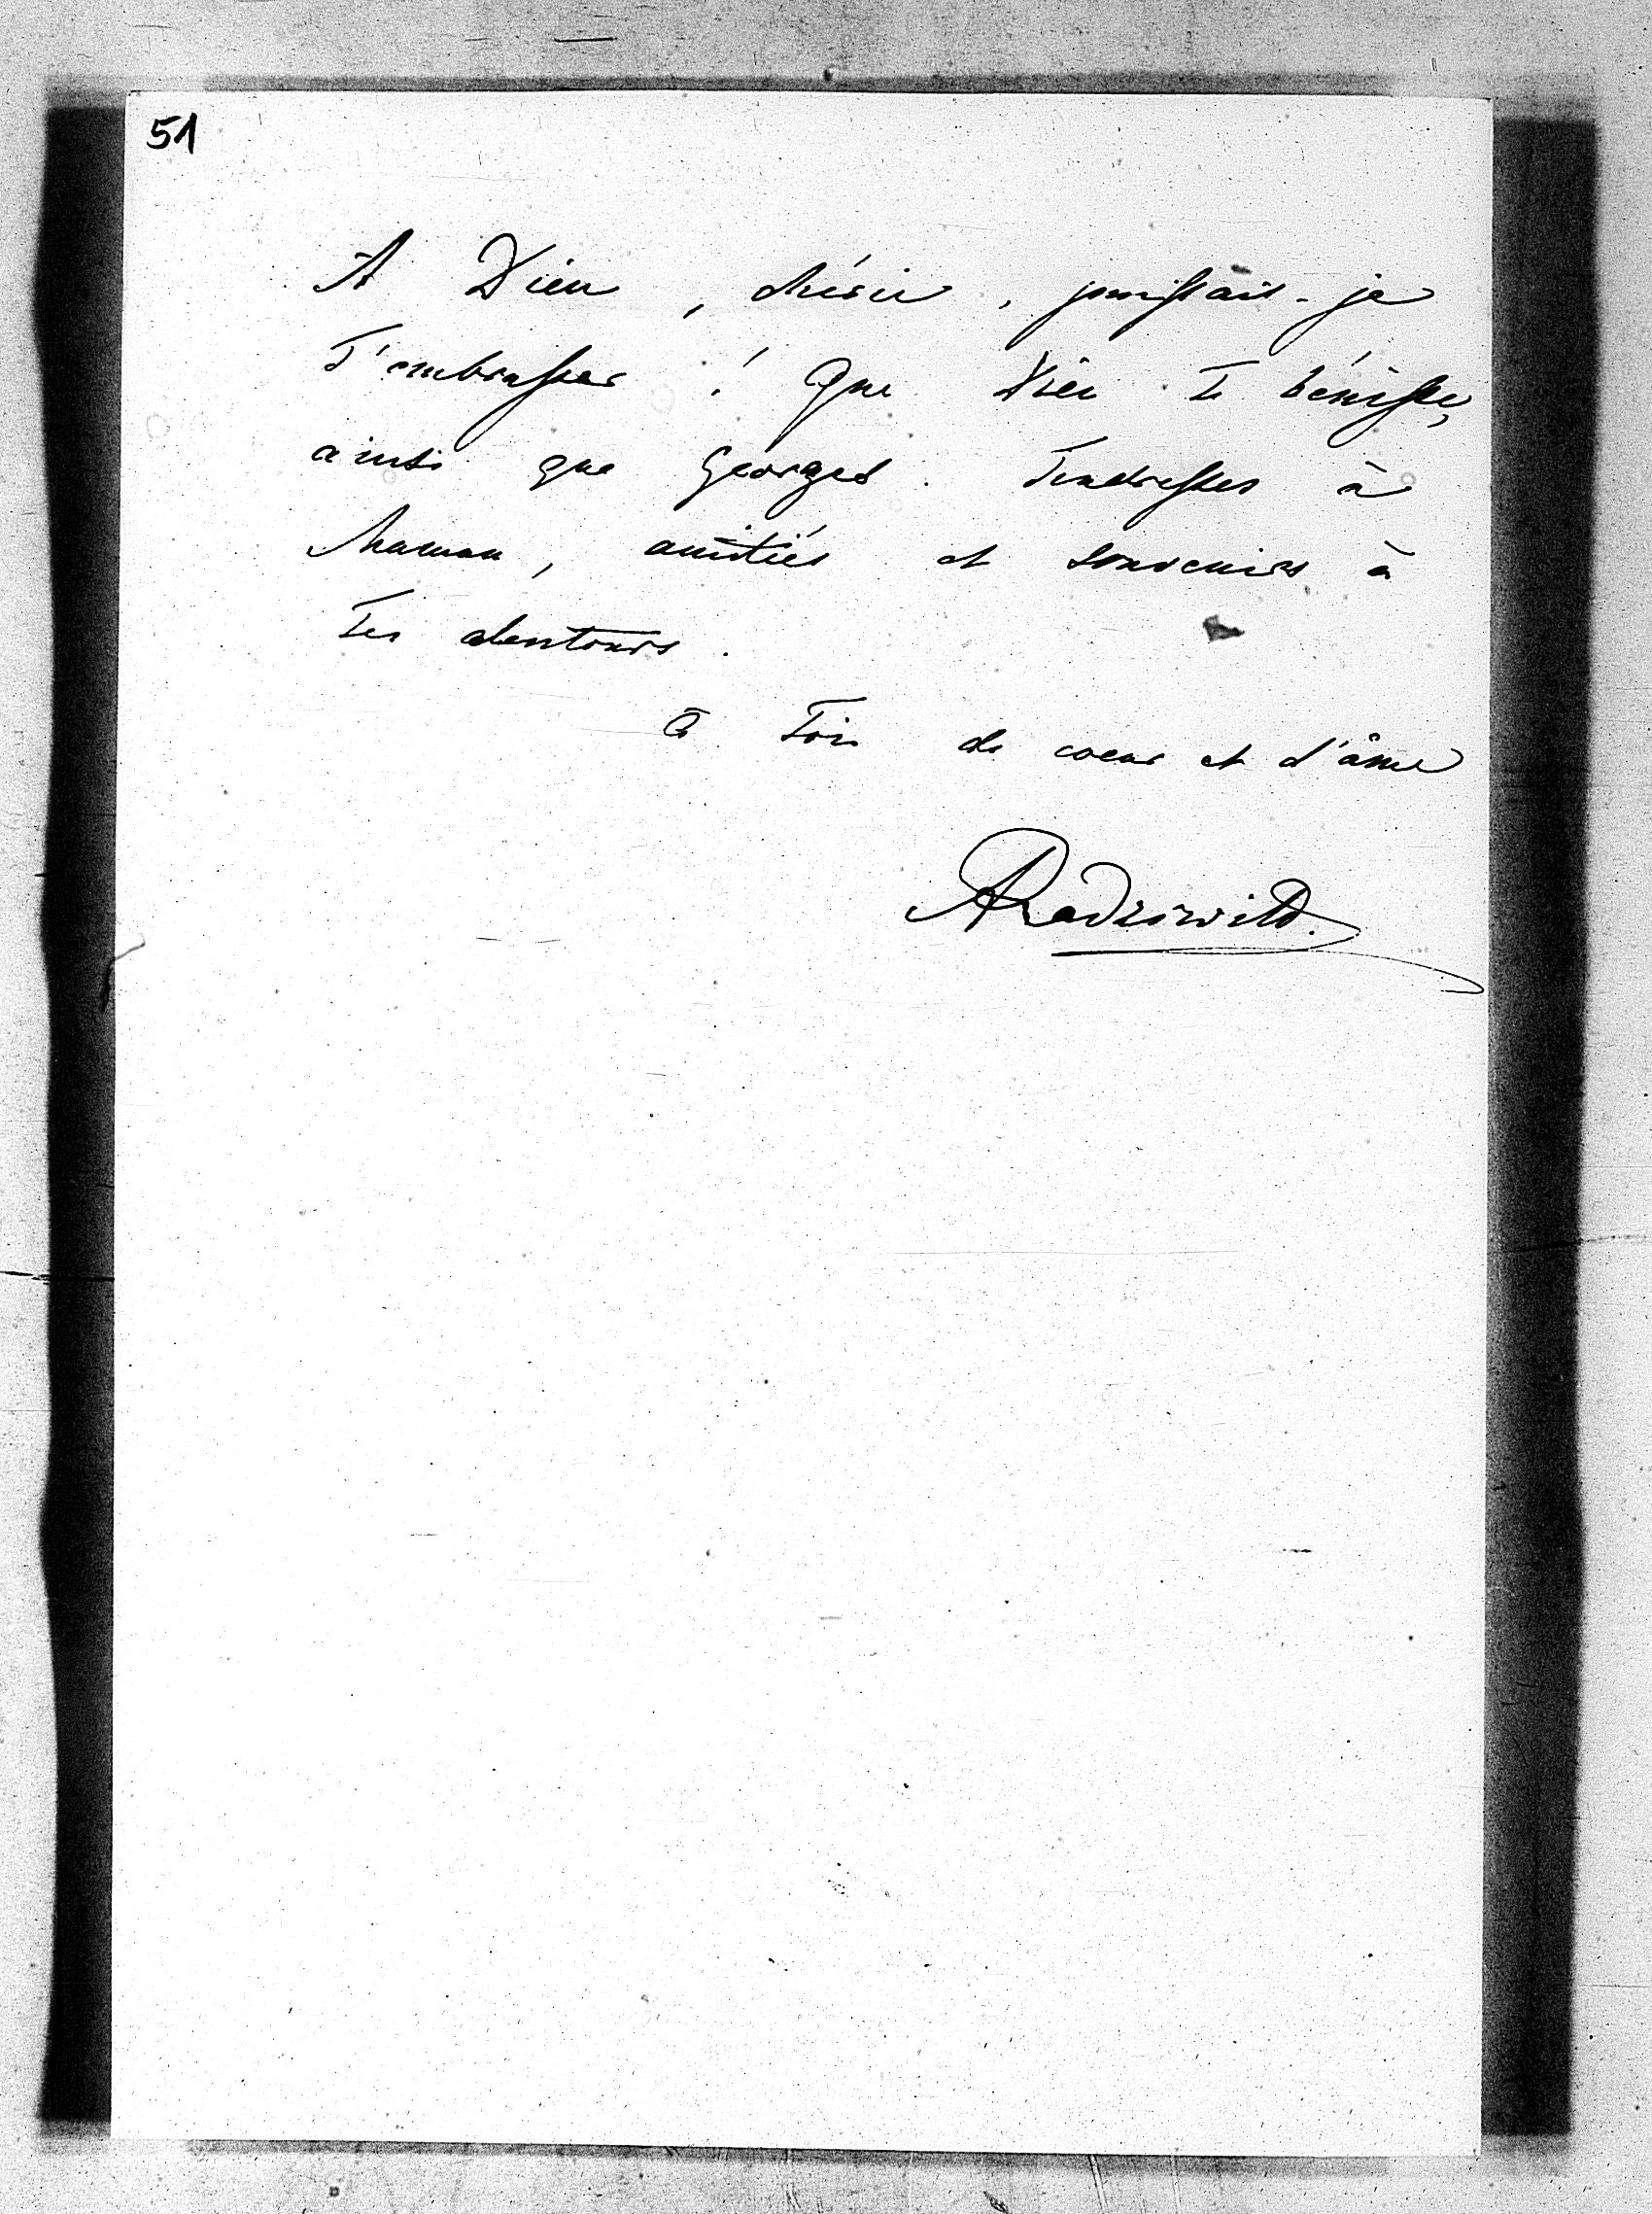 51
A Dieu, chérie, puissais-je
T'embrasser ! Que Dieu Te bénisse,
ainsi que Georges. Tendresses à
Maman, amitiés et souvenirs à
Tes alentours.
à Toi de coeur et d'âme
ARadziwill.